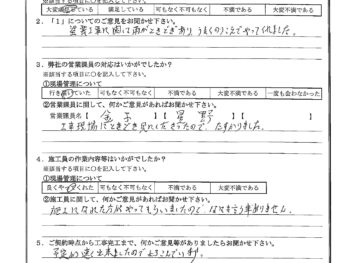 ※該当する項目に○を記入して下さい。
大変満足している 満足している 可もなく不可もなく 不満である 大変不満である
2．「1」についてのご意見をお聞かせ下さい。
塗装工事は 雨がときどきあり うまくのりこえてやってくれました。
3．弊社の営業課員の対応はいかがでしたか？
※該当する項目に○を記入して下さい。
①現場管理について
行き いていた 可もなく不可もなく 不満である 大変不満である 一度も会わなかった
②営業課員に関して、何かご意見があればお聞かせ下さい。
営業課員名【 金子 】【 星野 】【
工事現場にときどき見にくださったので、たすかりました。
4．施工員の作業内容等はいかがでしたか？
※該当する項目に○を記入して下さい。
①現場管理について
良くやってくれた 可もなく不可もなく 不満である 大変不満である
②施工員に関して、何かご意見があればお聞かせ下さい。
施工になれた方がやってもらいましたので、なにも言う事ありません。
5．ご契約時点から工事完工まで、何かご意見等がありましたらお聞かせ下さい。
予定 出来ましたのでよろこんでいます。